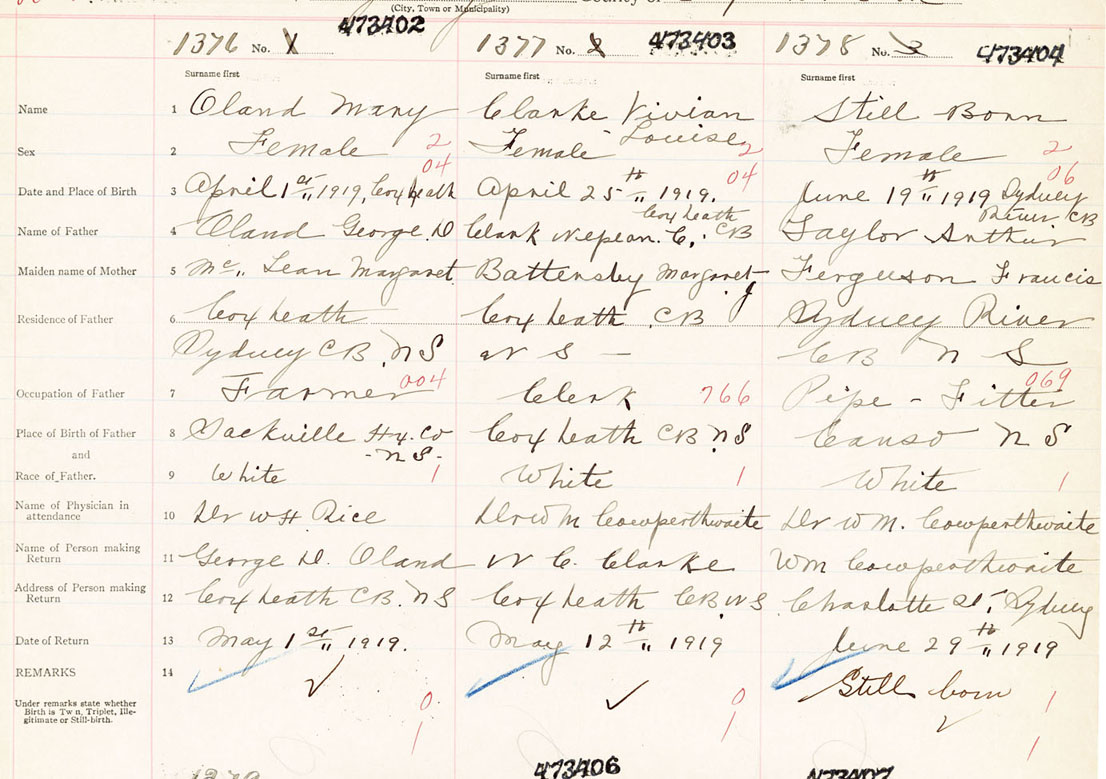 (City, Town or Municipality) County of
473402 473403 473404
1376 No. 1 1377 No. 2 1378 No. 3
Surname first Surname first Surname first
Name 1 Oland Mary Clarke Vivian Still Born
Louise
Sex 2 Female 2 Female 2 Female 2
04 04 06
Date and Place of Birth 3 April 1st, 1919, Coxheath April 25th, 1919. June 19th 1919 Sydney
Coxheath CB River CB
Name of Father 4 Oland George. D Clark Nepean. C. Taylor Arthur
Maiden name of Mother 5 Mc,, Lean Margaret Battensby Margaret J Ferguson Francis
Residence of Father 6 Coxheath Coxheath CB Sydney River
Sydney CB. NS N S — CB N S
004 069
Occupation of Father 7 Farmer Clerk 766 Pipe - Fitter
Place of Birth of Father 8 Sackville Hx. Co Coxheath CB NS Canso N S
and - NS -
Race of Father. 9 White 1 White 1 White 1
Name of Physician in
attendance 10 Dr WH Rice Dr Wm Cowperthwaite Dr Wm. Cowperthwaite
Name of Person making
Return 11 George D. Oland N C. Clarke Wm Cowperthwaite
Address of Person making
Return 12 Coxheath CB. NS Coxheath CB NS Charlotte St, Sydney
Date of Return 13 May 1st 1919. May 12th 1919 June 29th 1919
REMARKS 14 Still born
Under remarks state whether 0 0 1
Birth is Tw n, Triplet, Ille-
gitimate or Still-birth.
1 1 1
473406 473407